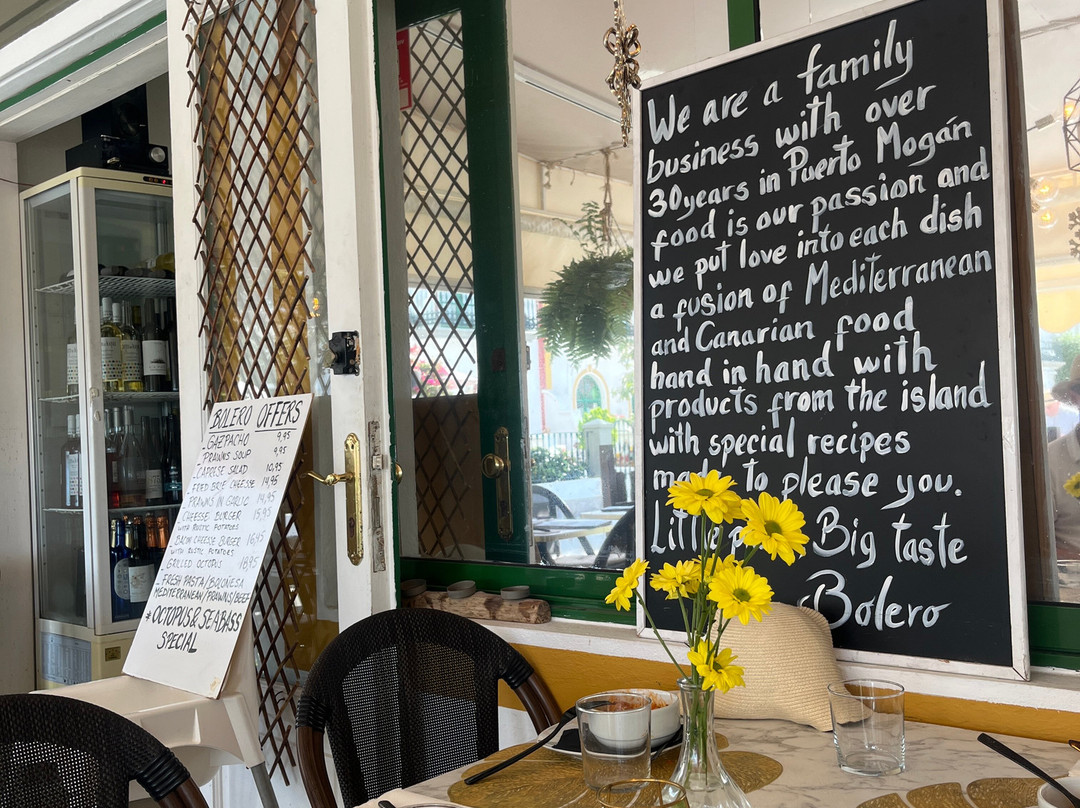 We are a family
business with over
30years in Puerto Mogán
food is our passion and
we put love into each dish
a fusion of Mediterranean
and Canarian food
hand in hand with
products from the island
with special recipes
to please you.
Big taste
Bolero
BOLERO OFFERS
GAZPACHO 9,95
PRAWNS SOUP 9,95
CAPRESE SALAD 10,95
FRIED BRIE CHEESE 14,95
PRAWNS IN GARLIC 14,95
CHEESE BURGER 15,95
WITH RUSTIC POTATOES
BACON CHEESE BURGER 16,95
WITH RUSTIC POTATOES
GRILLED OCTOPUS 18,95
FRESH PASTA/BOLOÑESA
MEDITERRANEAN/PRAWNS/BEEF
* OCTOPUS & SEABASS
SPECIAL